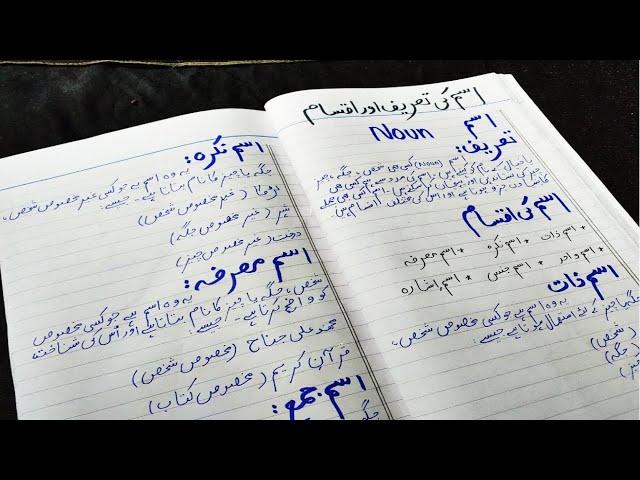 اسم کی تعریف اور اقسام
اسم
Noun
تعریف:
اسم (Noun) کسی بھی شخص، جگہ، چیز
اسم کی اقسام
* اسم ذات * اسم نکرہ * اسم معرفہ
* اسم واحد * اسم جنس * اسم اشارہ
اسم ذات
یہ وہ اسم ہے جو کسی مخصوص شخص،
کے لئے استعمال ہوتا ہے جیسے:
شخص)
(جگہ)
اسم نکرہ:
یہ وہ اسم ہے جو کسی غیر مخصوص شخص،
جگہ یا چیز کا نام بتاتا ہے۔ جیسے:
لڑکا (غیر مخصوص شخص)
شہر (غیر مخصوص جگہ)
درخت (غیر مخصوص چیز)
اسم معرفہ:
یہ وہ اسم ہے جو کسی مخصوص
شخص، جگہ یا چیز کا نام بتاتا ہے اور اس کی شناخت
کو واضح کرتا ہے۔ جیسے:
محمد علی جناح (مخصوص شخص)
قرآن کریم (مخصوص کتاب)
اسم جمع: